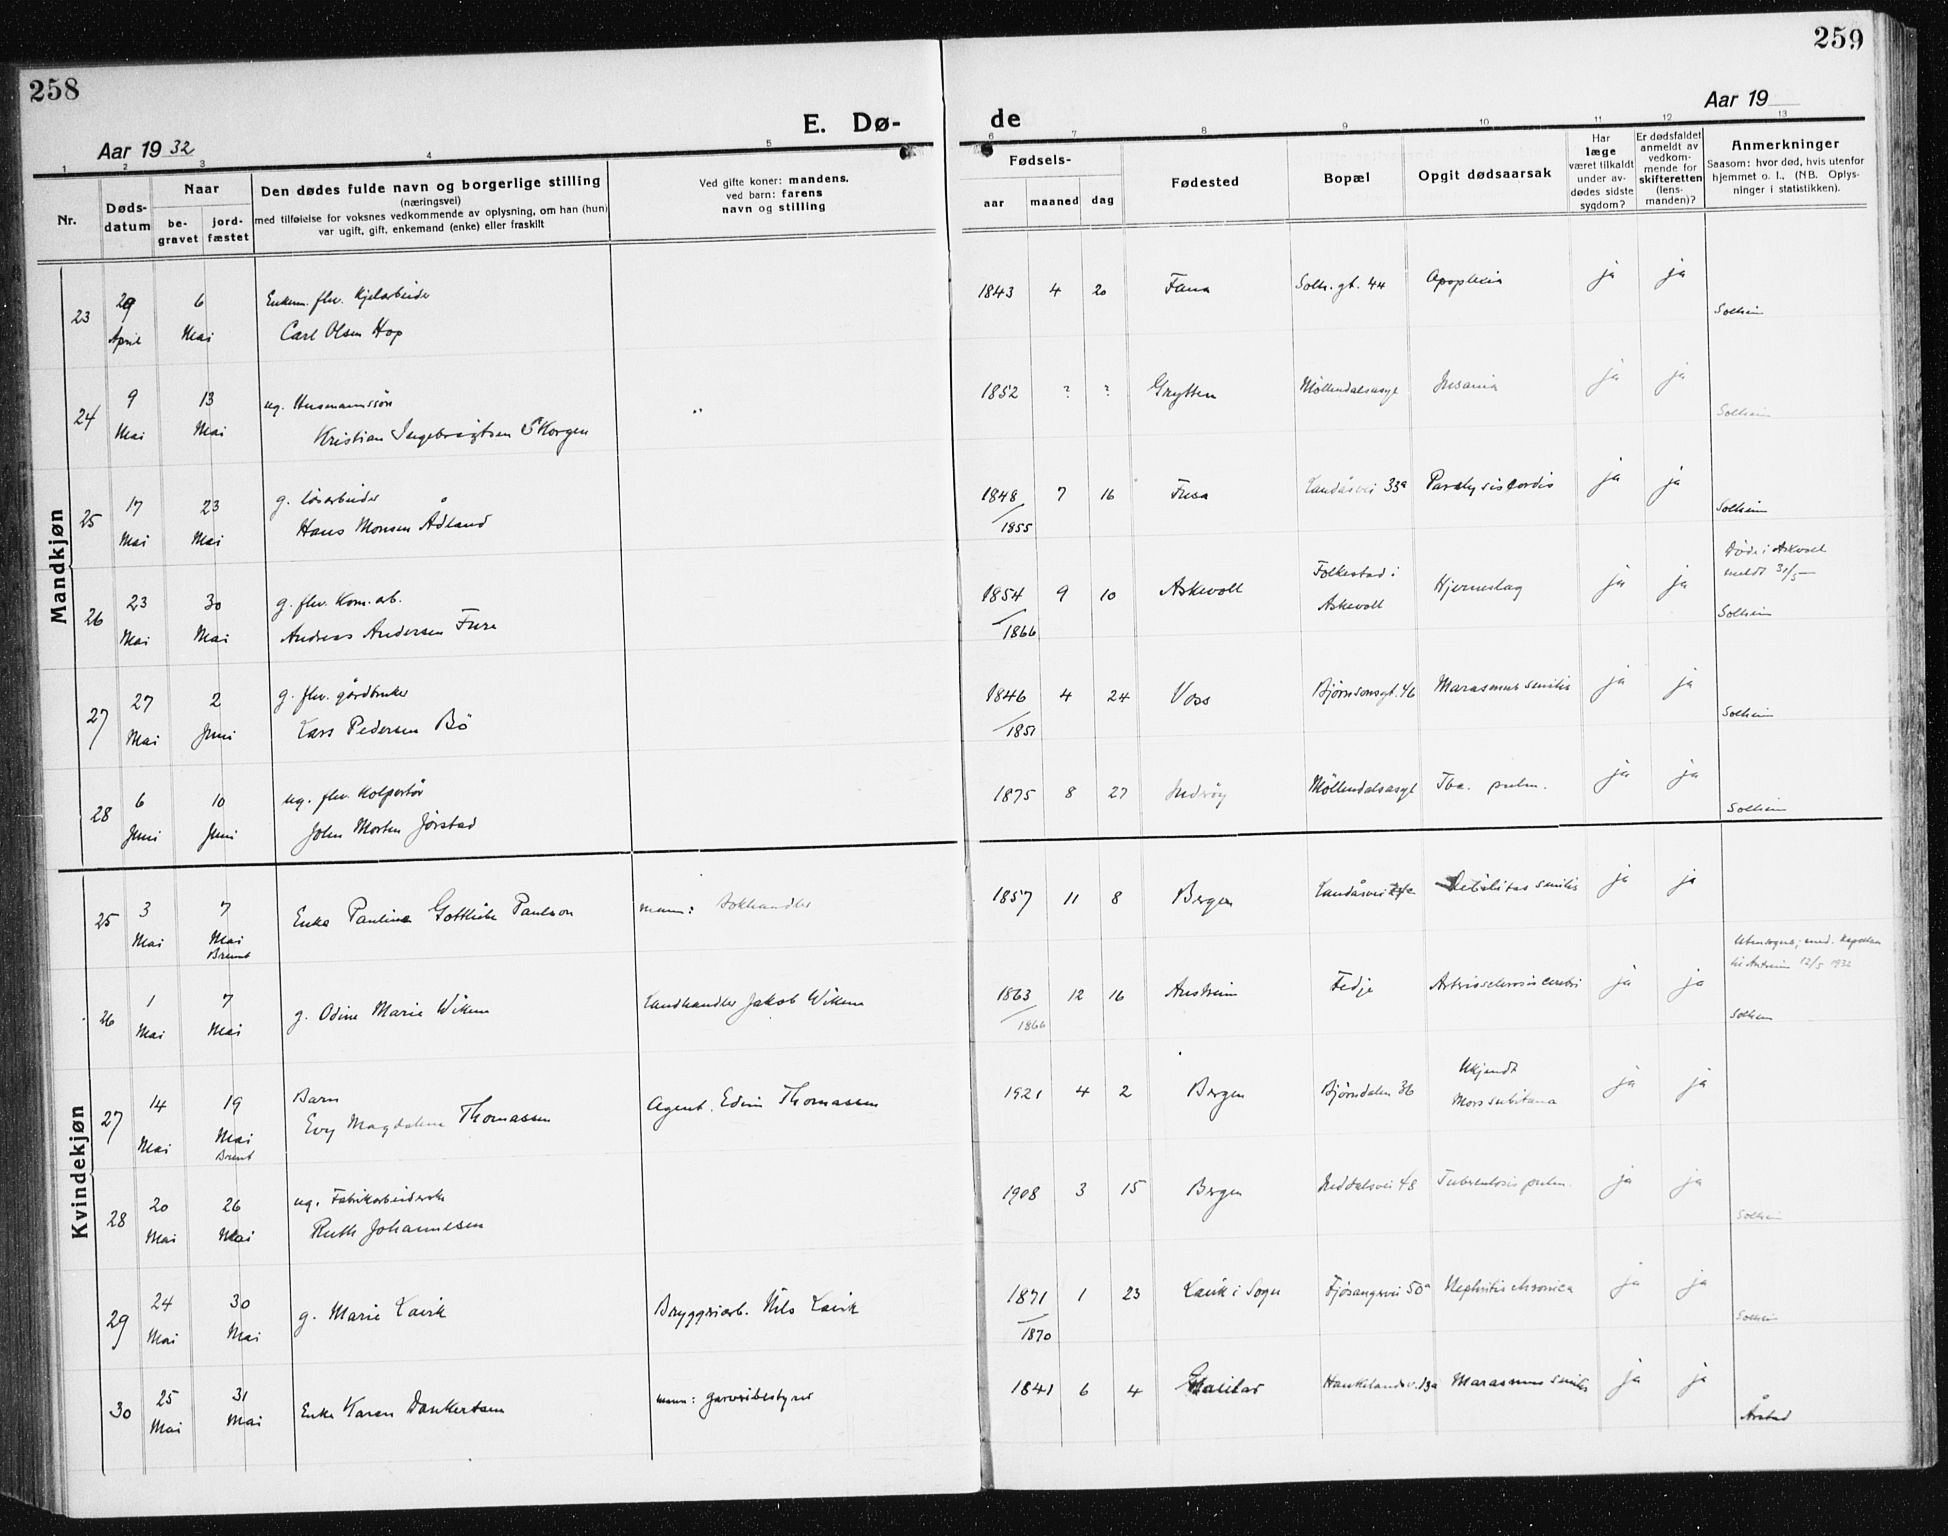 258
259
Aar 1932
E. Dø-
de
Aar 19
1 2 3 4 5 6 7 8 9 10 11 12 13
Nr.
Døds-
datum
Naar
be-
gravet
jord-
fæstet
Den dødes fulde navn og borgerlige stilling
(næringsvei)
med tilføielse for voksnes vedkommende av oplysning, om han (hun)
var ugift, gift, enkemand (enke) eller fraskilt
Ved gifte koner: mandens.
ved barn: farens
navn og stilling
Fødsels-
aar maaned dag
Fødested
Bopæl
Opgit dødsaarsak
Har
læge
været tilkaldt
under av-
dødes sidste
sygdom?
Er dødsfaldet
anmeldt av
vedkom-
mende for
skifteretten
(lens-
manden)?
Anmerkninger
Saasom: hvor død, hvis utenfor
hjemmet o. l., (NB. Oplys-
ninger i statistikken).
Mandkjøn
23 29 April 6 Mai
Enkem. fhv. Kjelarbeider
Carl Olsen Hop
1843 4 20 Fana Solh. gt. 44 Apoplexia ja ja Solheim
24 9 Mai 13 Mai
ug. Husmannssön
Kristian Ingebrigtsen Skorgen
"
1852 ? ? Grytten Möllendalsasyl Insania ja ja Solheim
25 17 Mai 23 Mai
g. løsarbeider
Hans Monsen Ådland
1848 7 16 Fusa Landåsvei 33a Paralysis cordis ja ja Solheim
/1855
26 23 Mai 30 Mai
g. fhv. Kom. arb.
Andreas Andersen Fure
1854 9 10 Askevoll Folkestad i
Askevoll Hjerneslag ja ja
/1866
Døde i Askevoll
meldt 30/5
Solheim
27 27 Mai 2 Juni
g. fhv. gårdbruker
Lars Pedersen Bö
1846 4 24 Voss Bjørnsonsgt. 46 Marasmus senilis ja ja Solheim
/1851
28 6 Juni 10 Juni
ug. fhv. Kolportör
John Morten Jörstad
1875 8 27 Inderøy Möllendalsasyl Tbc. pulm. ja ja Solheim
Kvindekjøn
25 3 Mai 7 Mai
Brent
Enke Pauline Gottliebe Paulson
mann: Bokhandler
1857 11 8 Bergen Landåsvei Debilitas senilis ja ja
26 1 Mai 7 Mai
g. Odine Marie Wiken
Landhandler Jakob Wiken
1863 12 16 Austrheim Fedje Arteriosclerosis cerebri ja ja
/1866
Utensogns; med.
til Austrheim 12/5 1932
Solheim
27 14 Mai 19 Mai
Brent
Barn
Evy Magdalene Thomassen
Agent. Edvin Thomassen
1921 4 2 Bergen Bjørndalen 36 Ukjendt
Mors subitana ja ja
28 20 Mai 26 Mai
ug. Fabrikarbeiderske
Ruth Johannesen
1908 3 15 Bergen 48 Tuberkulosis pulm. ja ja Solheim
29 24 Mai 30 Mai
g. Marie Lavik
Bryggeriarb. Nils Lavik
1871 1 23 Lavik i Sogn Fjøsangervei 50a Nephritis chronica ja ja Solheim
/1870
30 25 Mai 31 Mai
Enke Karen Dankertsen
mann: garveribestyrer
1841 6 4 Haukelandsv. 13a Marasmus senilis ja ja Årstad